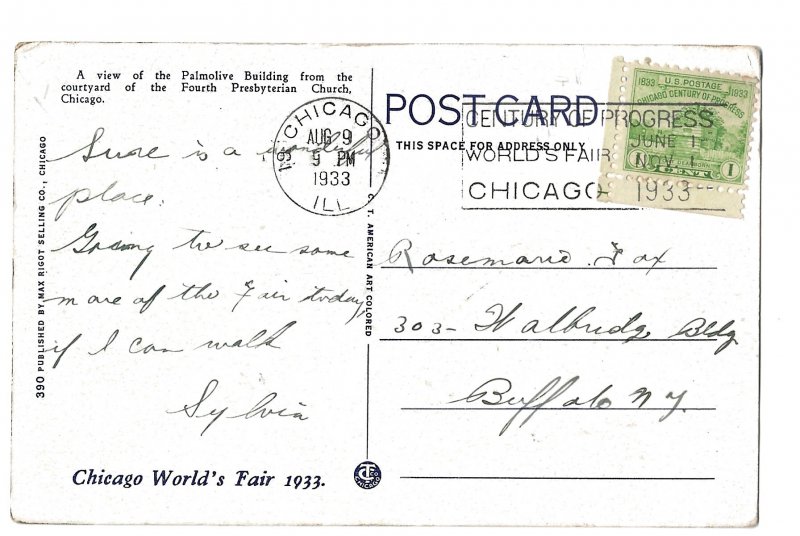 A view of the Palmolive Building from the
courtyard of the Fourth Presbyterian Church,
Chicago.
Sure is a wonderful
place.
Going to see some
more of the Fair today,
if I can walk
Sylvia
Chicago World's Fair 1933.
390 PUBLISHED BY MAX RIGOT SELLING CO., CHICAGO
C. T. AMERICAN ART COLORED
CHICAGO
AUG 9
9 PM
1933
ILL
POST CARD
THIS SPACE FOR ADDRESS ONLY
CENTURY OF PROGRESS
JUNE 1
WORLD'S FAIR
NOV. 1
CHICAGO 1933
1833 U.S. POSTAGE 1933
CHICAGO CENTURY OF PROGRESS
1 CENT 1
Rosemarie Fox
303- Walbridg Bldg
Buffalo NY